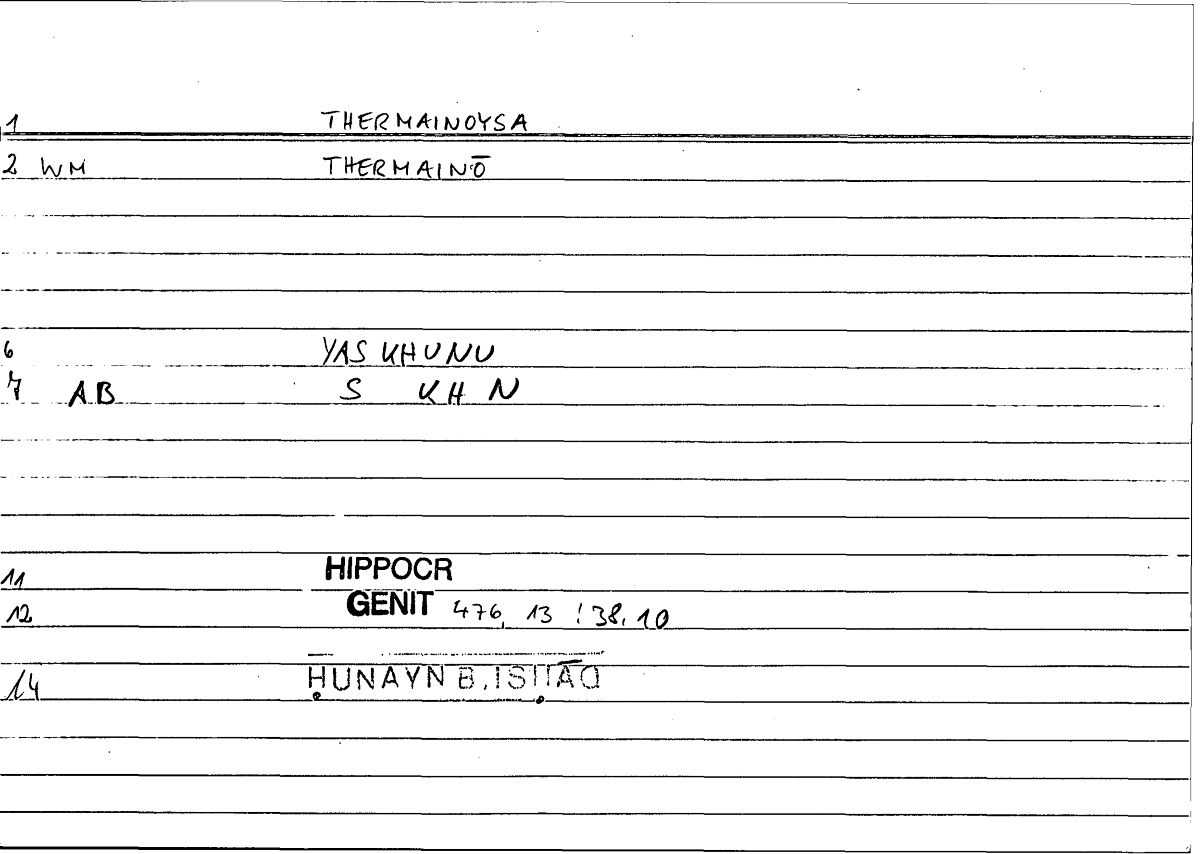 1 THERMAINOYSA
2 WM THERMAINŌ
6 YAS KHUNU
7 AB S KH N
11 HIPPOCR
12 GENIT 476, 13 : 38, 10
14 ḤUNAYN B. ISḤĀQ